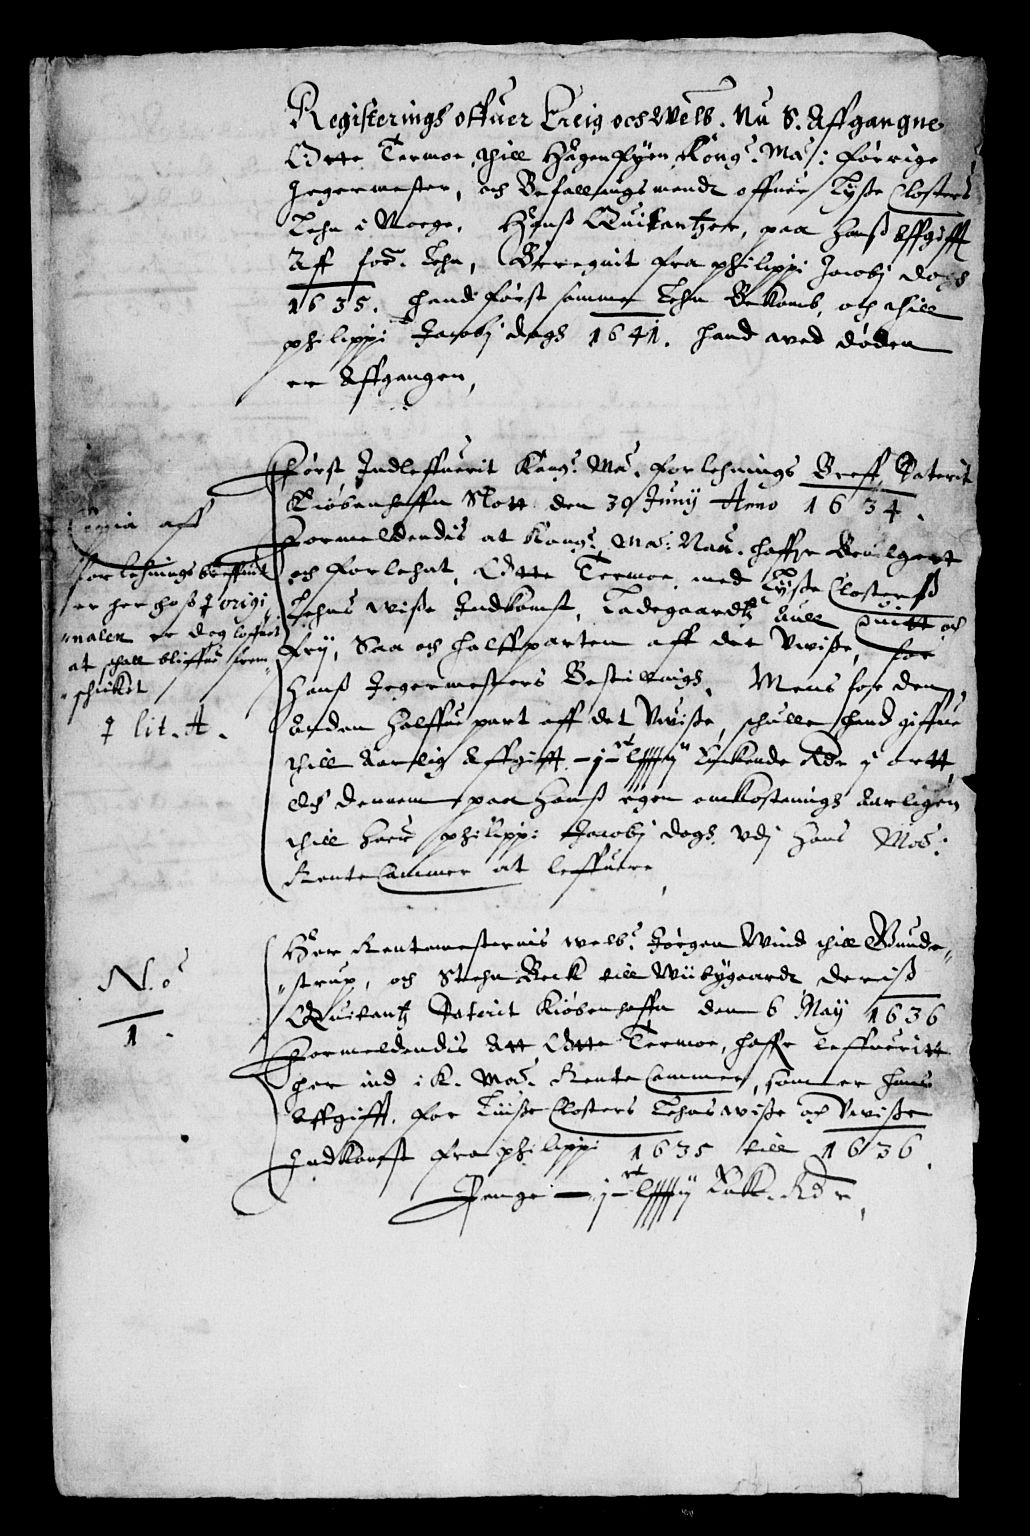 Registerings offuer Erlig och Welb. Nu S. Affgangne
Otte Termoe, thill Hagenskyen, Kong: Ma: forrige
Jegermester, och Befallingsmandt offuer Lysse Closters
Lehn i Norge, Hanss Quitantzer, paa Hanss Affgifft
Aff for: Lehn, Beregnit fra philippi Jacobj dags
1635. hand først samme Lehn bekomb, och thill
philippi Jacobj dags 1641. hand wed døden
er Affgangen,
Først Indleffuerit Kong: Ma: forlehnings Breff, Daterit
Kiøbenhaffn Slott den 30 Junij Anno 1634.
Formeldendis at Kong: Ma: Naad. haffr Beuilgett
och forlehnt, Otte Termoe, med Lysse Closterss
Lehns wisse Indkomst, Ladegaardtz Aull Quitt och
frij, Saa och halffparten aff det Uwisse, for
Hanss Jegermesters Bestillnings, Mens for den
anden halffue part aff det Uwisse, schulle hand giffue
thill Aarlig Affgifft – j – rt lxxxxij Enckende Rdr j ortt,
Och dennem paa hanss egen omkostnings Aarligen
thill huer philippi Jacobj dags, Udj Hans Ma:
Rente Cammer at leffuere,
Copia aff
forlehnings breffuit
er her hoss origi,,
,,nalen er dog loffuet
at schall bliffue frem,,
,,schicket
lit. A.
No:
1.
Her Rentemesternis welb: Jørgen Wind thill Gunde,,
,,strup, och Stehn Beck till Wibygaardt, deriss
Quitantz Daterit Kiøbenhaffn den 6 May 1636
Formeldendis Att Otte Termoe, haffr leffueritt
her ind i K. Ma: Rente Cammer, som er hans
Affgifft, for Lysse Closters Lehns wisse och Uwisse
Indkomst fra philippi 1635 till 1636.
Penge – j – rt lxxxxij Enk. Rdr,